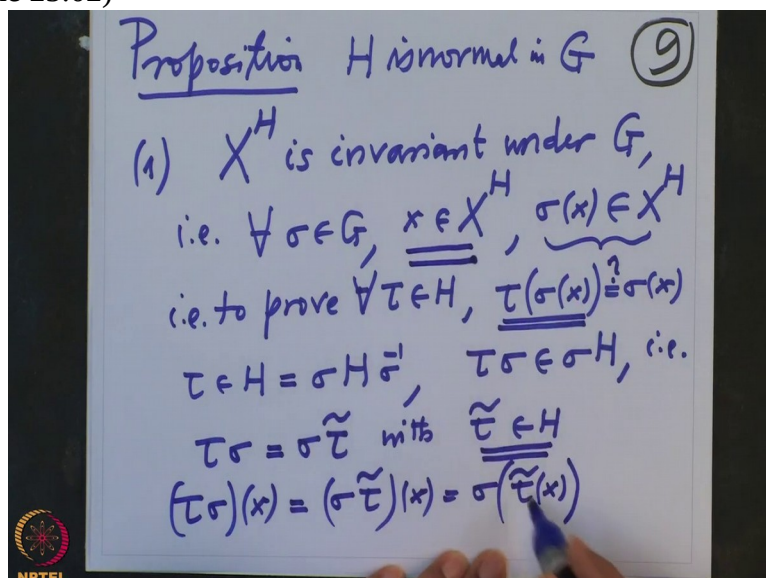 Proposition H is normal in G 9
(1) X^H is invariant under G,
i.e. ∀ σ ∈ G, x ∈ X^H, σ(x) ∈ X^H
i.e. to prove ∀ τ ∈ H, τ(σ(x)) ≟ σ(x)
τ ∈ H = σHσ^-1, τσ ∈ σH, i.e.
τσ = στ̃ with τ̃ ∈ H
(τσ)(x) = (στ̃)(x) = σ(τ̃(x))
NPTEL